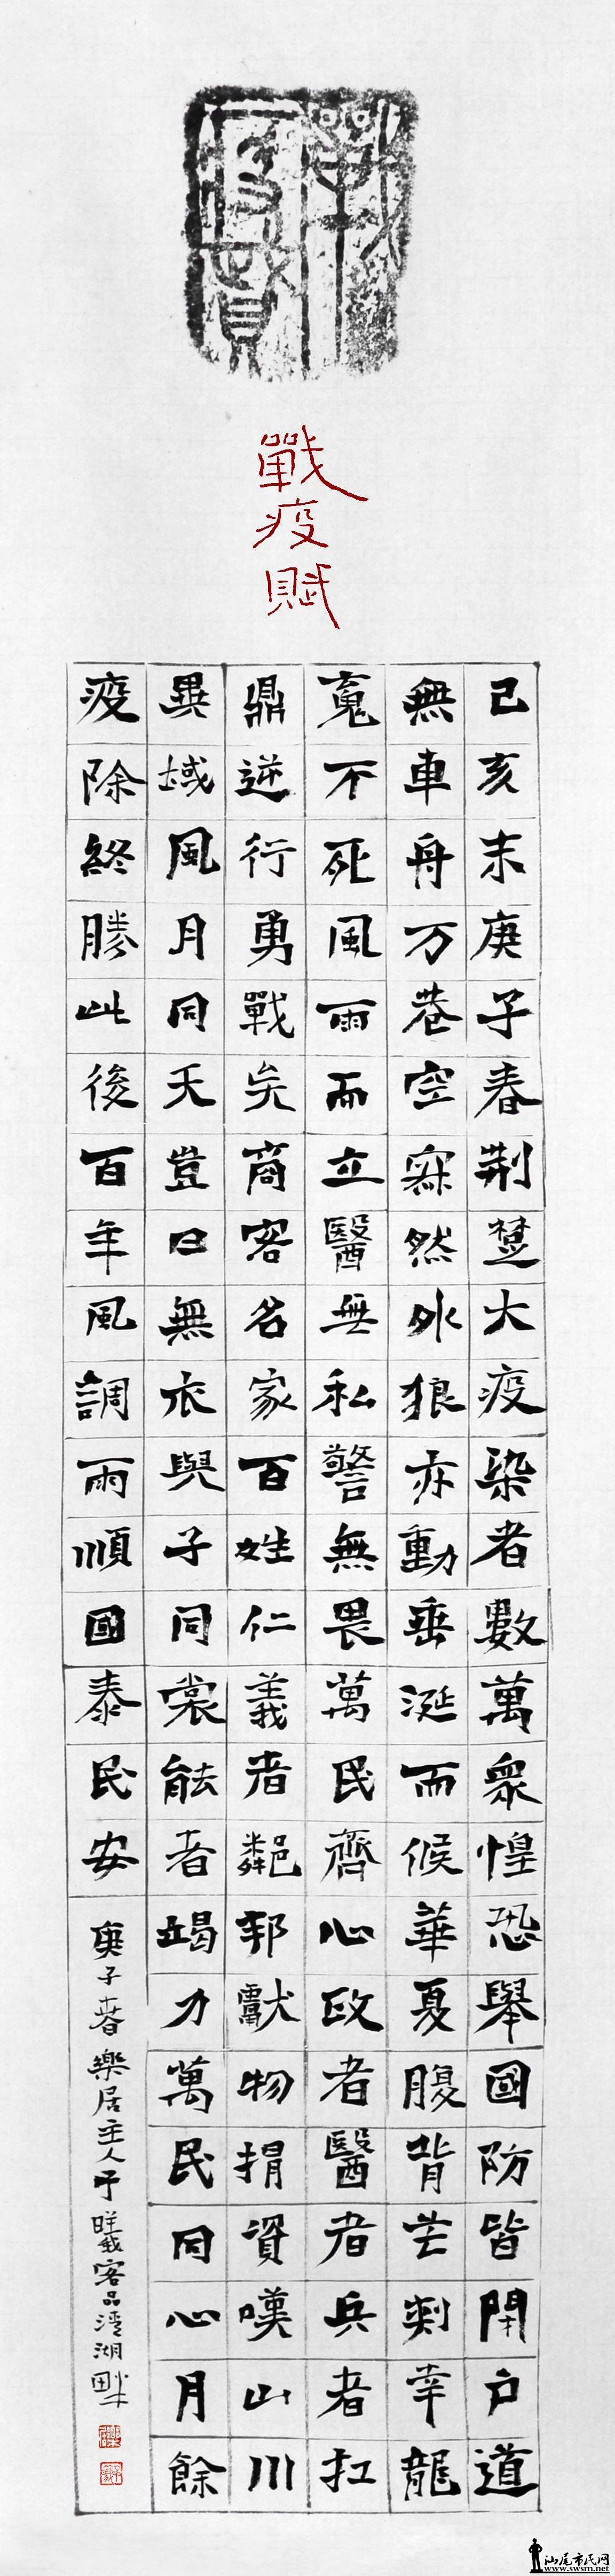 戰疫賦
戰疫賦
己亥末庚子春荆楚大疫染者數萬衆惶恐舉國防皆閉户道
無車舟万巷空寂然外狼亦動垂涎而候華夏腹背芒刺幸龍
魂不死風雨而立醫無私警無畏萬民齊心政者醫者兵者扛
鼎逆行勇戰矣商客名家百姓仁義者鄰邦獻物捐資嘆山川
異域風月同天豈曰無衣與子同裳能者竭力萬民同心月餘
疫除終勝此後百年風調雨順國泰民安
庚子春樂居主人于曦客品清湖畔
汕尾市民网
www.swsm.net